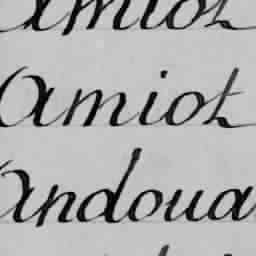 amiot
amiot
andoua